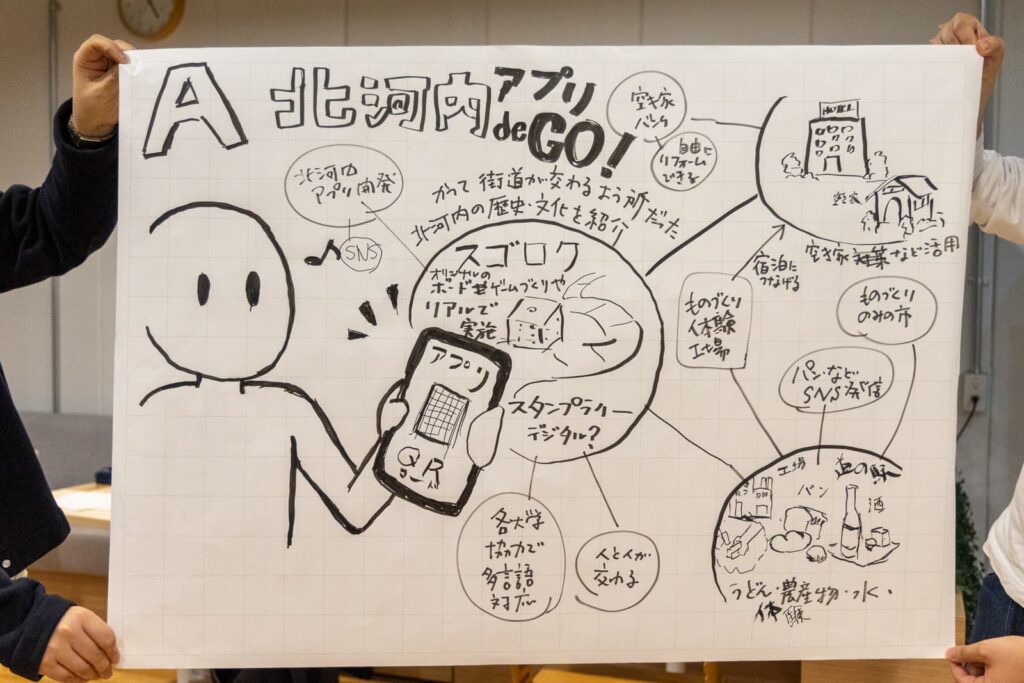 A 北河内 アプリ
de GO!
空き家
バンク
自由に
リフォーム
できる
北河内
アプリ開発
SNS
かつて 街道が交わるよう所だった
北河内の歴史・文化を紹介
スゴロク
オリジナルの
ボードゲームづくりや
リアルで
実施
アプリ
QR
コード
スタンプラリー
デジタル?
各大学
協力で
多言語
対応
人と人が
交わる
HOTEL
空家
空き家 など活用
宿泊に
つなげる
ものづくり
体験
工場
ものづくり
のみの市
パンなど
SNS発信
工場
パン
酒
うどん・農産物・水・
体験